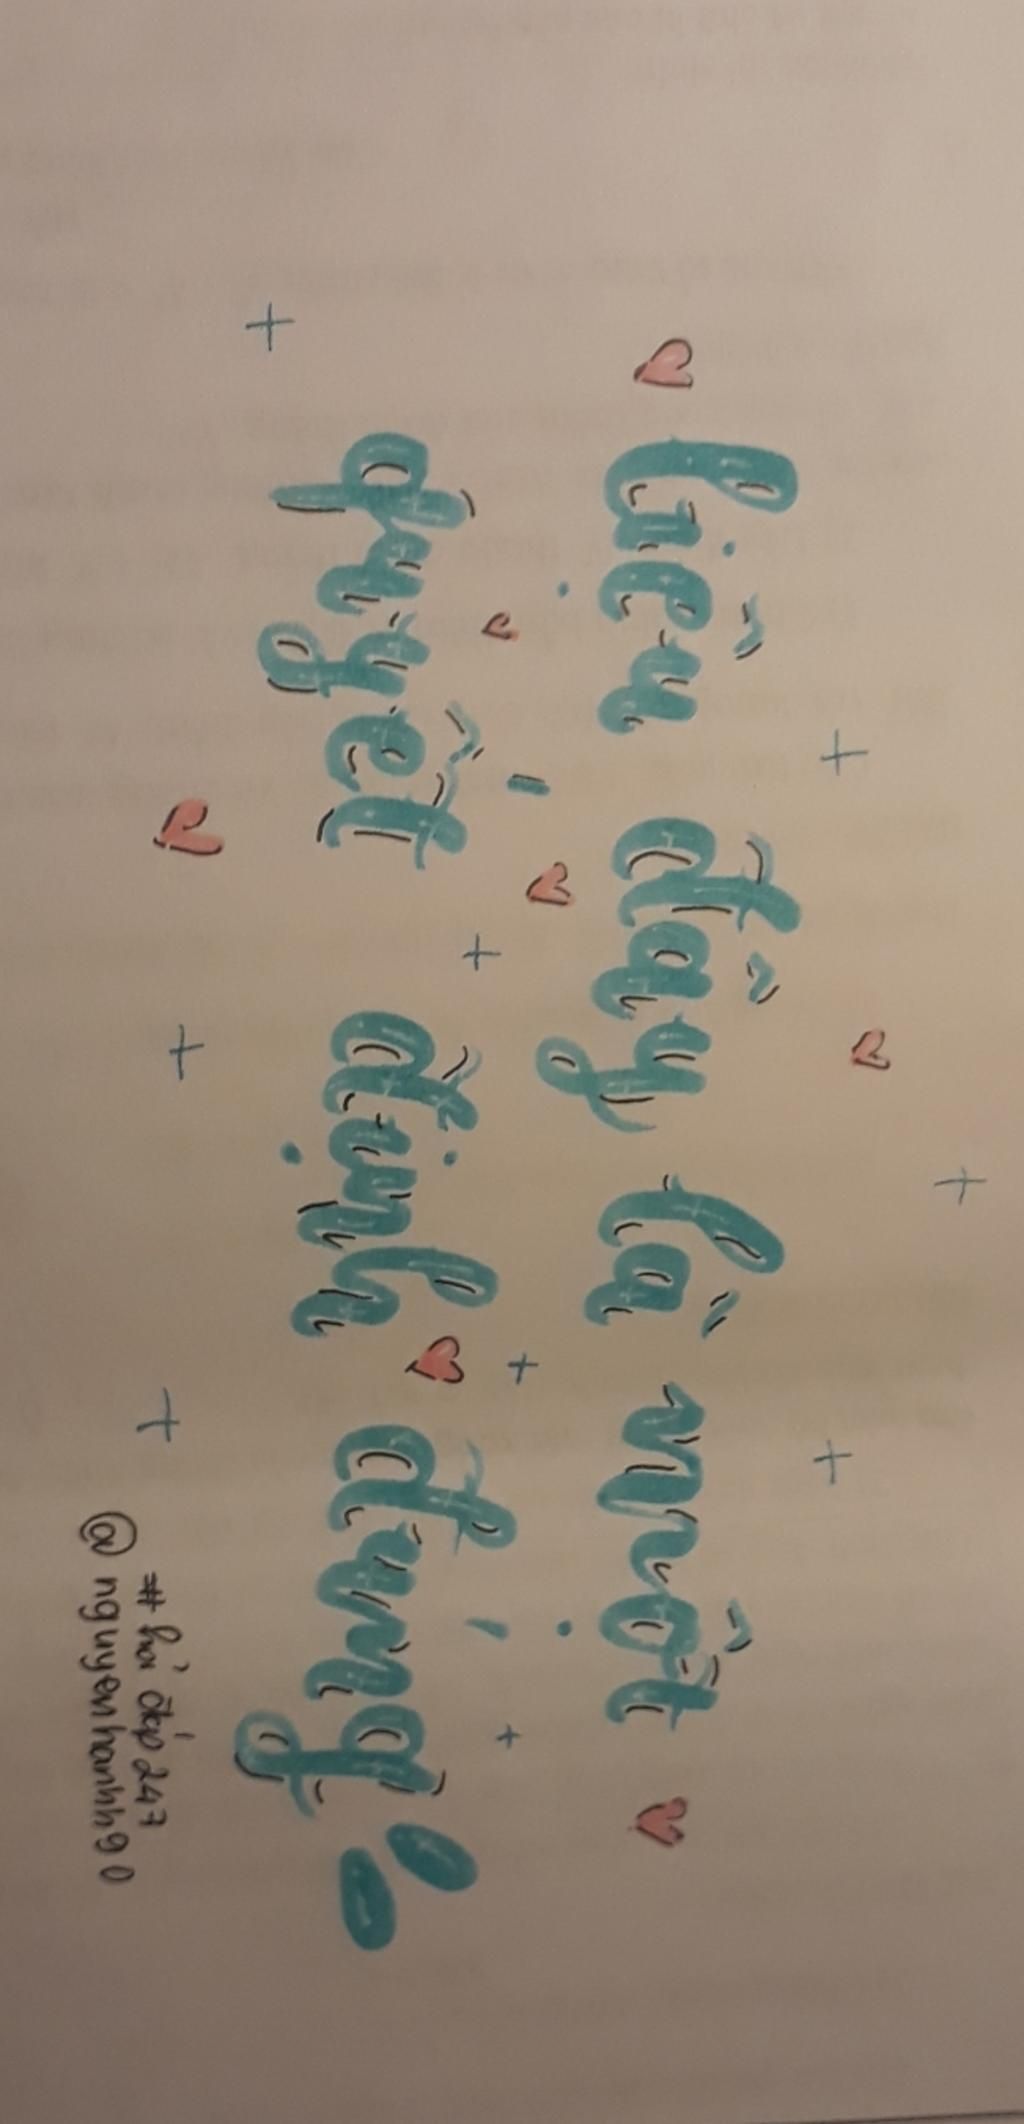 liệu đây là một
quyết định đúng
#hỏi đáp 247
@nguyenhanhh90